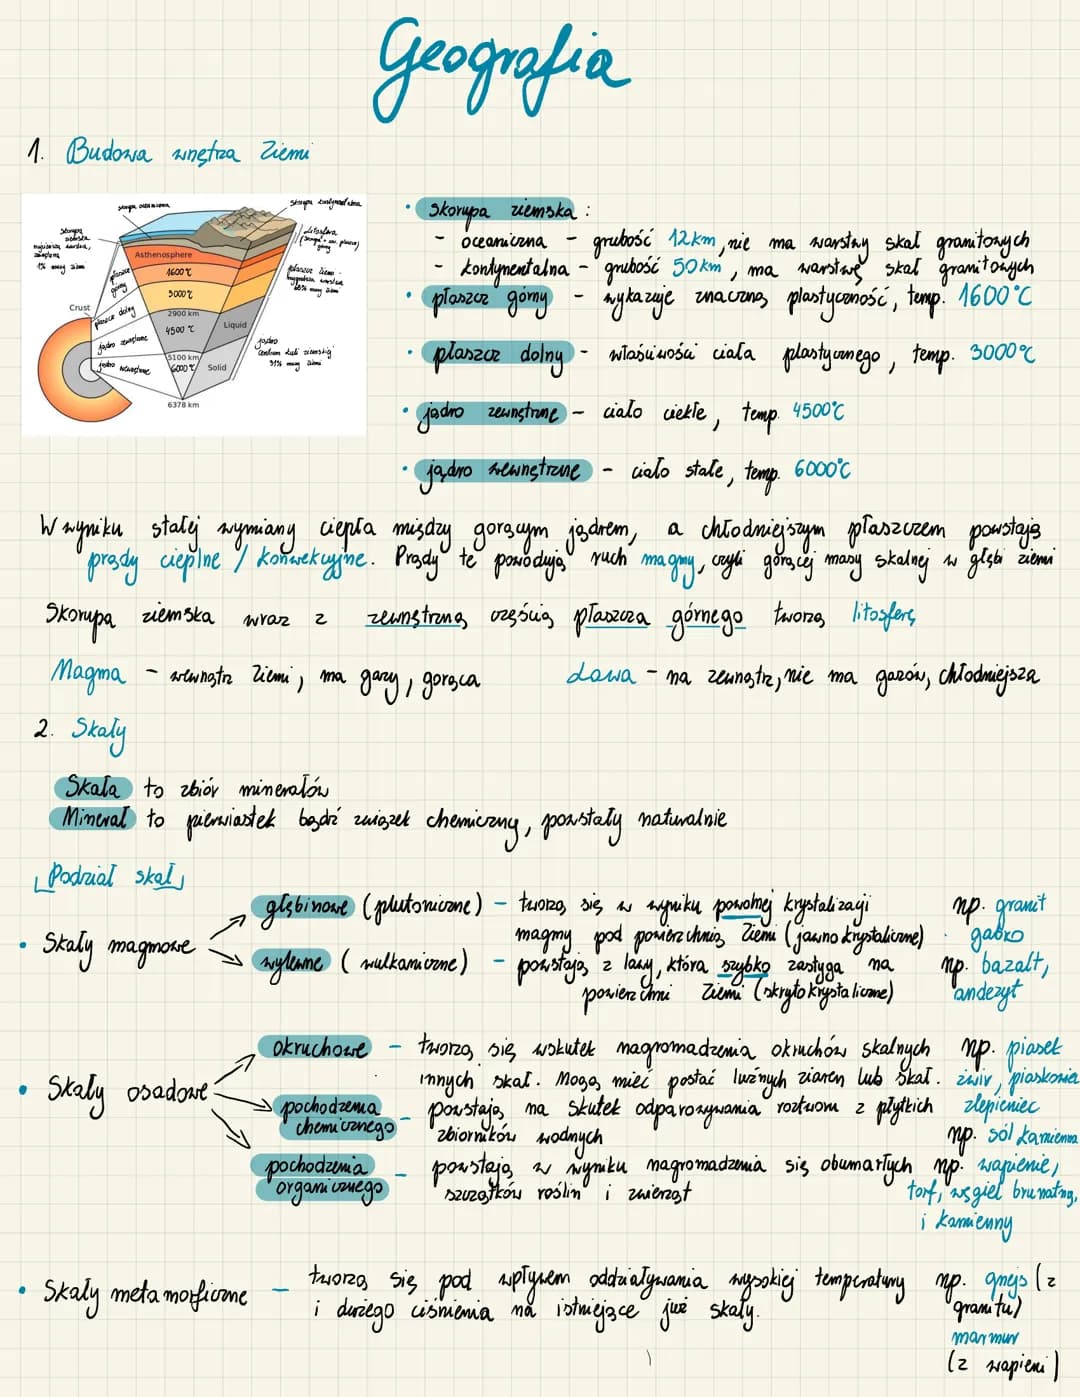 Geografia
1. Budowa wnętrza Ziemi
skorupa oceaniczna
skorupa kontynentalna
skorupa
ziemska
1% masy ziemi
Litosfera
Asthenosphere
1600°C
płaszcz
górny
3000°C
płaszcz ziemi -
największa warstwa
68% masy ziemi
Crust
płaszcz dolny
2900 km
4500°C
Liquid
jądro zewnętrzne
jądro
centrum kuli ziemskiej
31% masy ziemi
5100 km
6000°C
Solid
jądro wewnętrzne
6378 km
• Skorupa ziemska :
- oceaniczna - grubość 12km, nie ma warstwy skał granitowych
- kontynentalna - grubość 50km, ma warstwę skał granitowych
• płaszcz górny - wykazuje znaczną plastyczność, temp. 1600°C
• płaszcz dolny - właściwości ciała plastycznego, temp. 3000°C
• jądro zewnętrzne - ciało ciekłe, temp. 4500°C
• jądro wewnętrzne - ciało stałe, temp. 6000°C
W wyniku stałej wymiany ciepła między gorącym jądrem, a chłodniejszym płaszczem powstają
prądy cieplne / konwekcyjne. Prądy te powodują ruch magmy, czyli gorącej masy skalnej w głębi ziemi
Skorupa ziemska wraz z zewnętrzną częścią płaszcza górnego tworzą litosferę
Magma - wewnątrz Ziemi, ma gazy, gorąca
Lawa - na zewnątrz, nie ma gazów, chłodniejsza
2. Skały
Skała to zbiór minerałów
Minerał to pierwiastek bądź związek chemiczny, powstały naturalnie
Podział skał
• Skały magmowe
głębinowe (plutoniczne) - tworzą się w wyniku powolnej krystalizacji np. granit
magmy pod powierzchnią Ziemi (jawnokrystaliczne) gabro
wylewne (wulkaniczne) - powstają z lawy, która szybko zastyga na np. bazalt,
powierzchni Ziemi (skrytokrystaliczne) andezyt
• Skały osadowe
okruchowe - tworzą się wskutek nagromadzenia okruchów skalnych np. piasek
innych skał. Mogą mieć postać luźnych ziaren lub skał. żwir, piaskowiec
zlepieniec
pochodzenia
chemicznego - powstają na skutek odparowywania roztworu z płytkich
zbiorników wodnych np. sól kamienna
pochodzenia
organicznego - powstają w wyniku nagromadzenia się obumarłych np. wapienie,
szczątków roślin i zwierząt torf, węgiel brunatny,
i kamienny
• Skały metamorficzne - tworzą się pod wpływem oddziaływania wysokiej temperatury np. gnejs (z
i dużego ciśnienia na istniejące już skały. granitu)
marmur
(z wapieni)